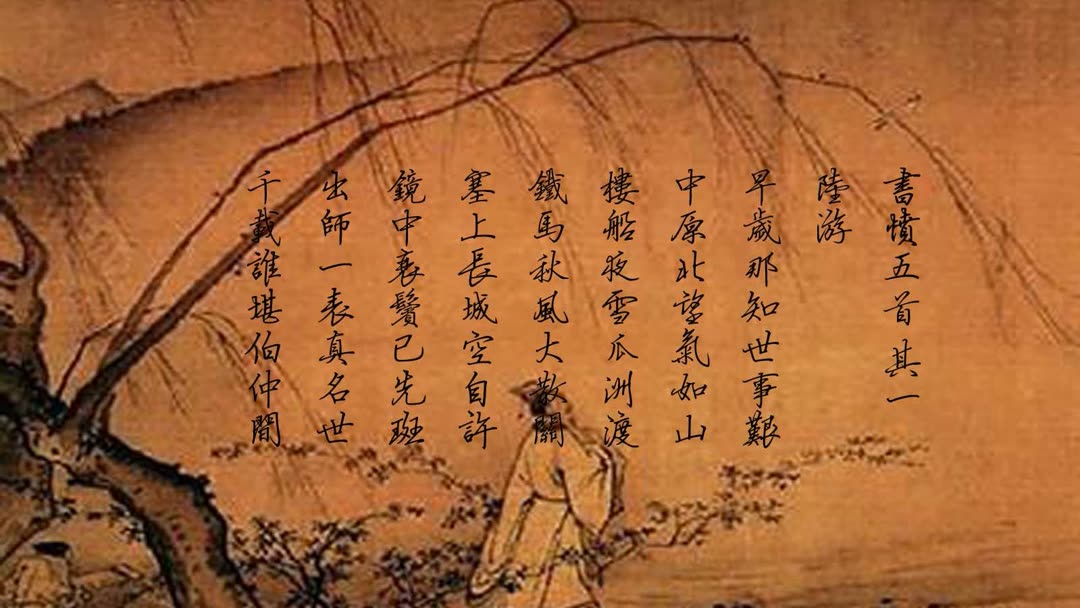 書憤五首其一
陸游
早歲那知世事艱
中原北望氣如山
樓船夜雪瓜洲渡
鐵馬秋風大散關
塞上長城空自許
鏡中衰鬢已先斑
出師一表真名世
千載誰堪伯仲間